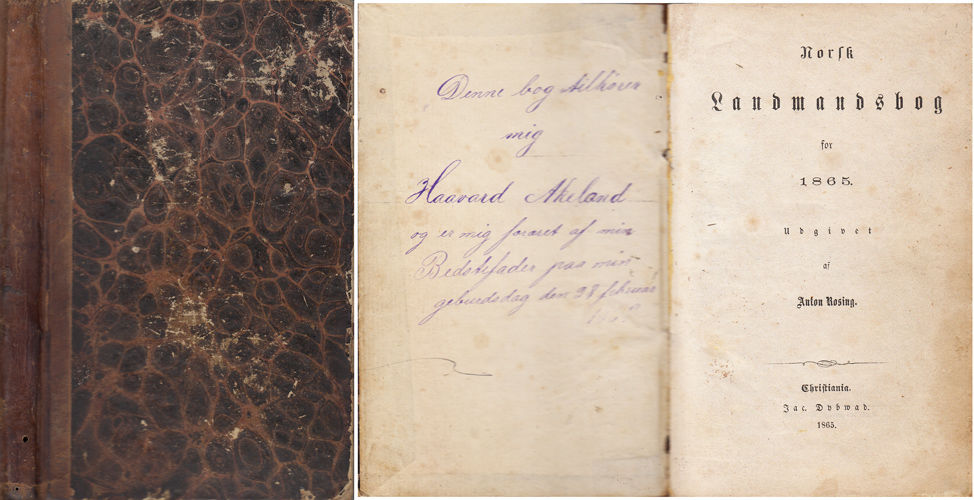 Denne bog tilhörer
mig
Haavard Akeland
og er mig foræret af min
Bedstefader paa min
geburdsdag den 28 februar
Norsk
Landmandsbog
for
1865.
Udgivet
af
Anton Rosing.
Christiania.
Jac. Dybwad.
1865.